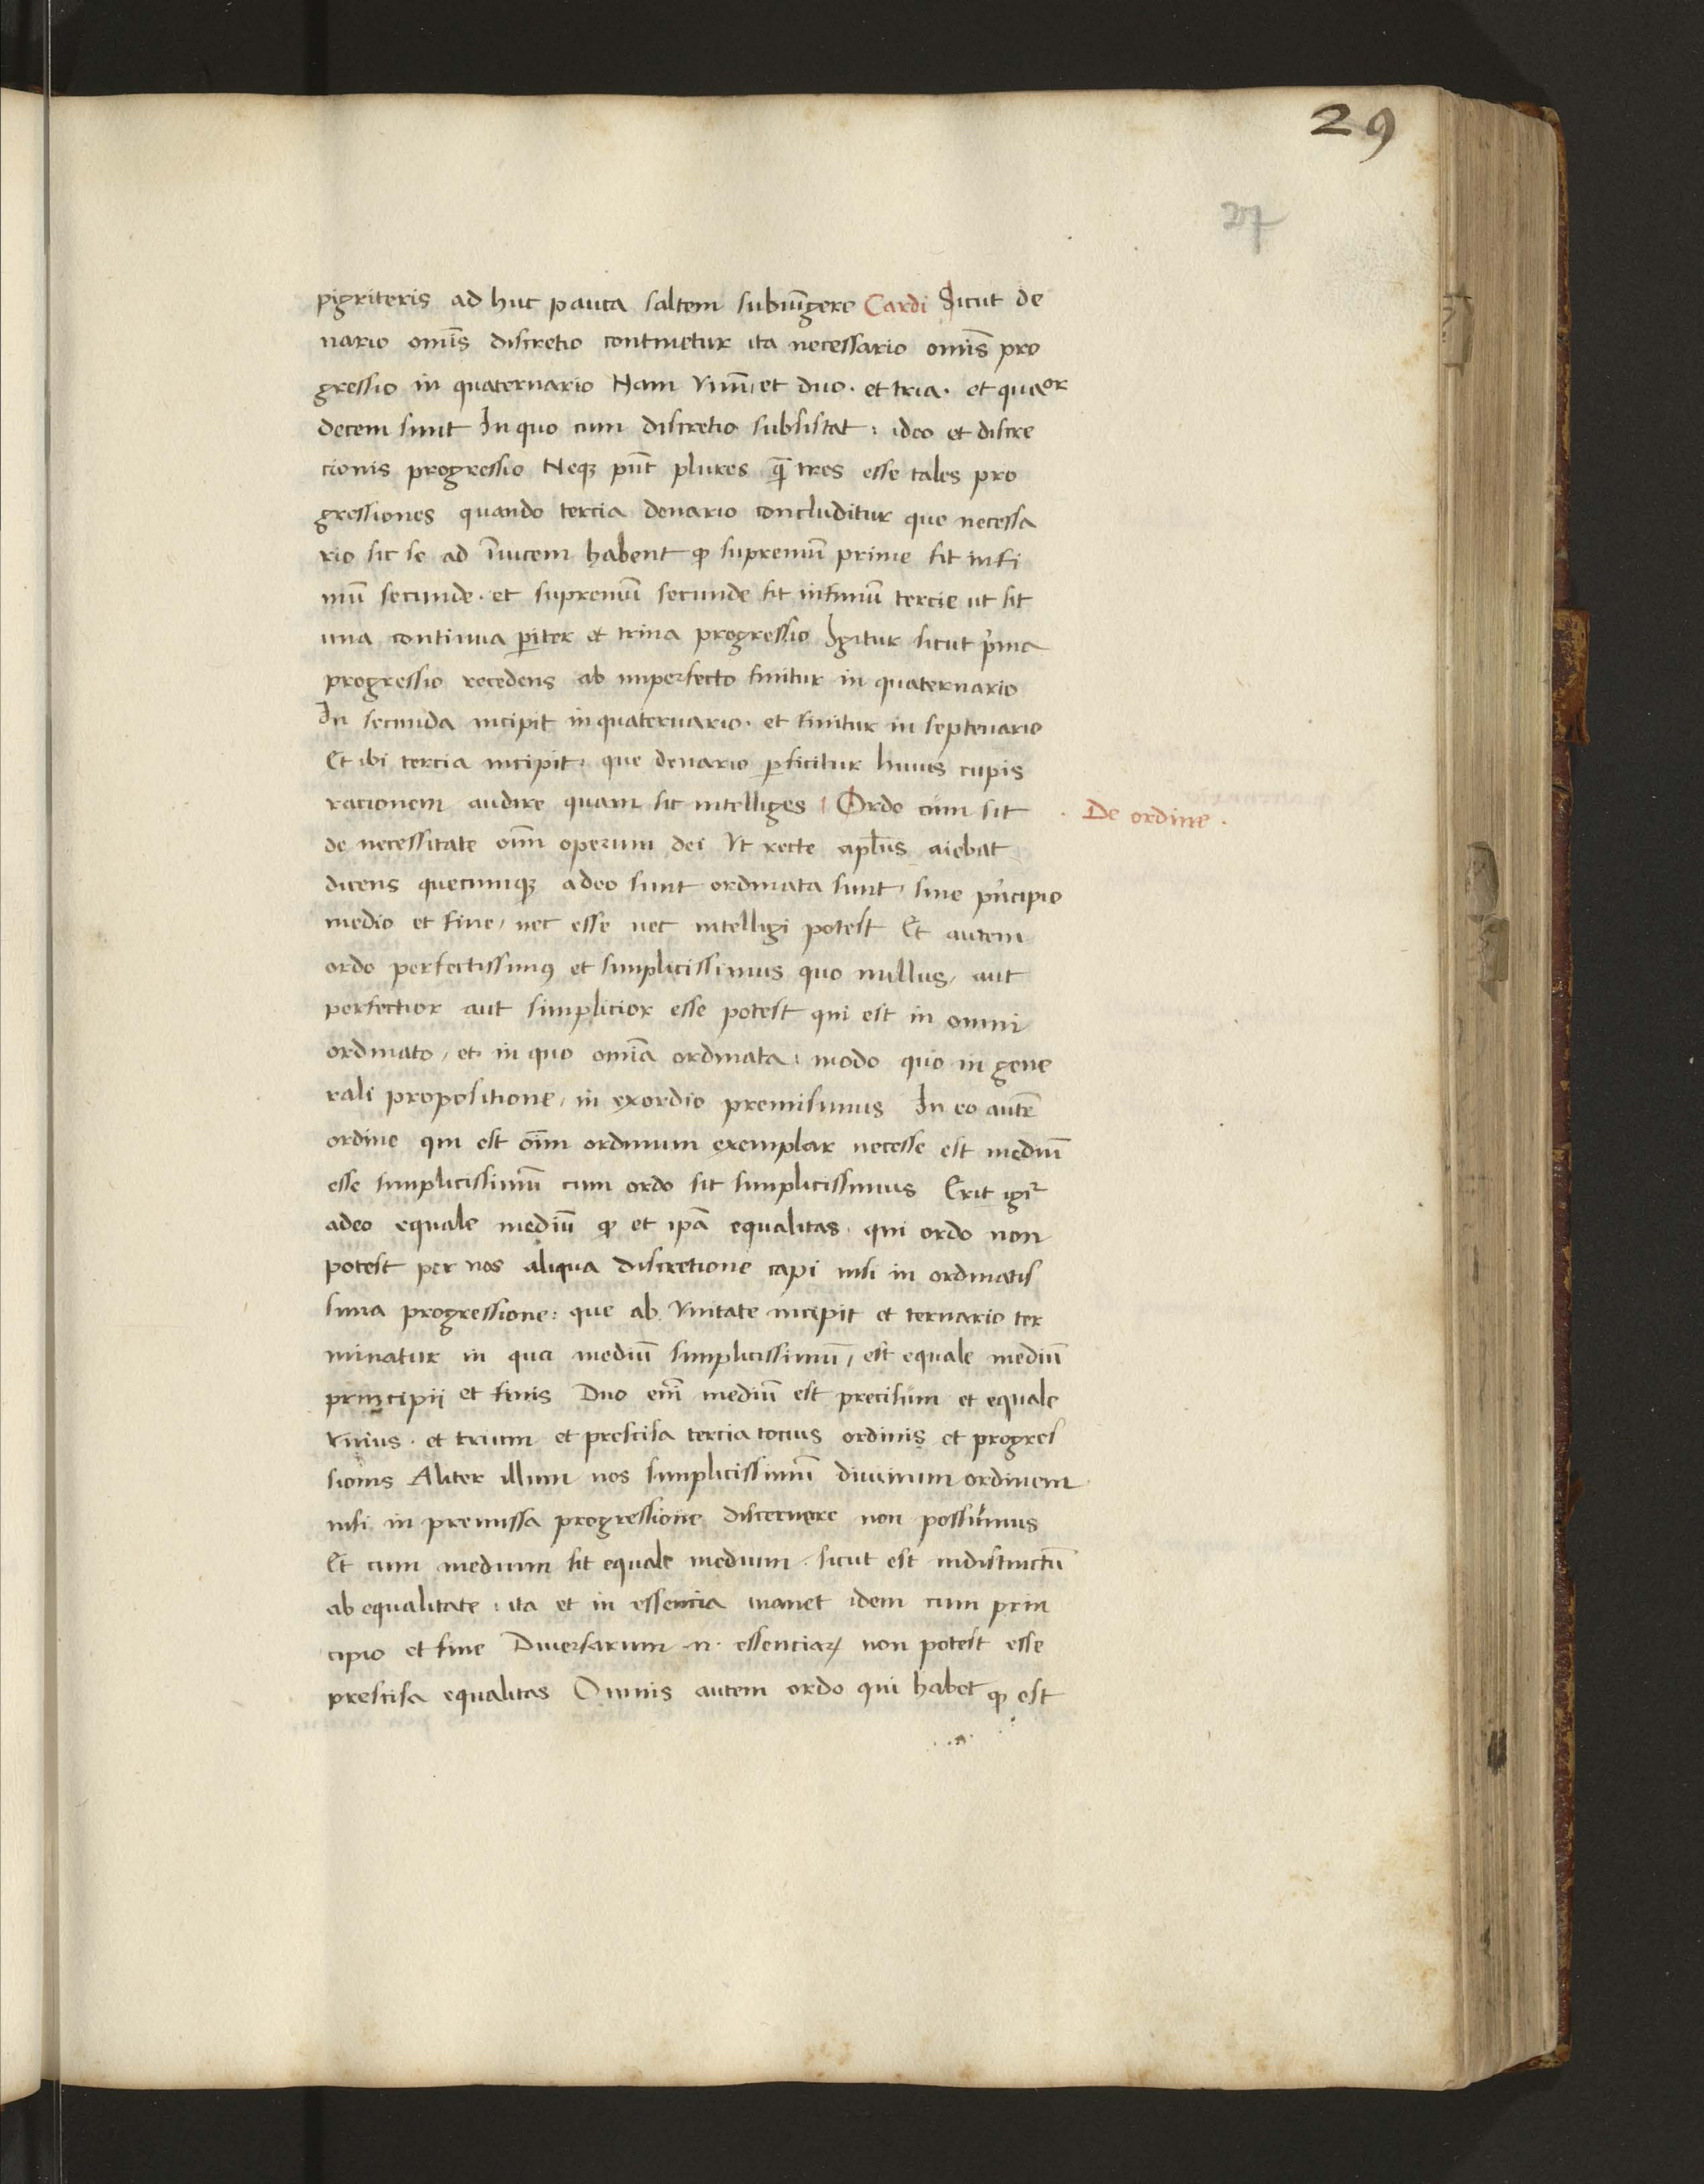 29
27
pigriteris ad huc pauca saltem subiūgere Cardi Sicut de
nario om̄is discretio continetur ita necessario om̄is pro
gressio in quaternario Nam vnū et duo · et tria · et quaor
decem sunt In quo cum discretio subsistat : ideo et discre
cionis progressio Neqꝫ pn̄t plures qꝫ̄ tres esse tales pro
gressiones quando tercia denario concluditur que necessa
rio sic se ad īuicem habent ꝙ supremū prime sit infi
mū secunde · et supremū secunde sit infimū tercie ut sit
una continua ꝑiter et trina progressio Igitur sicut pͥma
progressio recedens ab imperfecto finitur in quaternario
In secunda incipit in quaternario · et finitur in septenario
Et ibi tercia incipit · que denario ꝑficitur huius cupis
racionem audire quam sic intelliges Ordo cum sit
De ordine ·
de necessitate oīm operum dei vt recte aplūs aiebat
dicens quecunqꝫ adeo sunt ordinata sunt / sine pͥncipio
medio et fine / nec esse nec intelligi potest Et autem
ordo perfectissimꝰ et simplicissimus quo nullus / aut
perfectior aut simplicior esse potest qui est in omni
ordinato / et in quo om̄ia ordinata : modo quo in gene
rali propositione / in exordio premisimus In eo autē
ordine qui est oīm ordinum exemplar necesse est mediū
esse simplicissimū cum ordo sit simplicissimus Erit igͥr
adeo equale mediū ꝙ et ipā equalitas · qui ordo non
potest per nos aliqua discretione capi nisi in ordinatis
sima progressione : que ab vnitate incipit et ternario ter
minatur in qua mediū simplicissimū / est equale mediū
principii et finis Duo enī mediū est precisum et equale
vnius · et trium et prescisa tercia tocius ordinis et progres
sionis Aliter illum nos simplicissimū diuinum ordinem
nisi in premissa progressione discernere non possumus
Et cum medium sit equale medium · sicut est indistinctū
ab equalitate : ita et in essencia manet idem cum prin
cipio et fine Diuersarum ·n· essenciaꝝ non potest esse
prescisa equalitas Omnis autem ordo qui habet ꝙ est